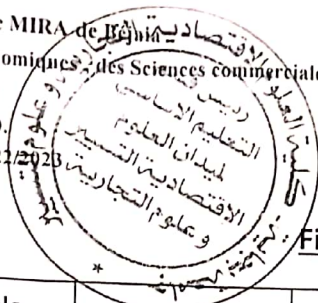 e MIRA de Béjaia
omiques, des Sciences commerciale
22/2023
كلية العلوم الاقتصادية
وعلوم
رئيس
التعليم الأساسي
لميدان العلوم
الاقتصادية التسيير
وعلوم التجارية
Fi